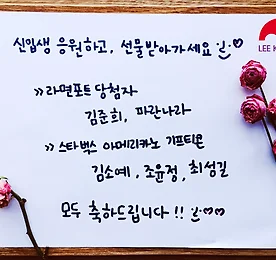 신입생 응원하고, 선물받아가세요 ツ♡
LEE K
>> 라면포트 당첨자
김준희, 파란나라
>> 스타벅스 아메리카노 기프티콘
김소예, 조윤정, 최성길
모두 축하드립니다 !! ツ♡♡